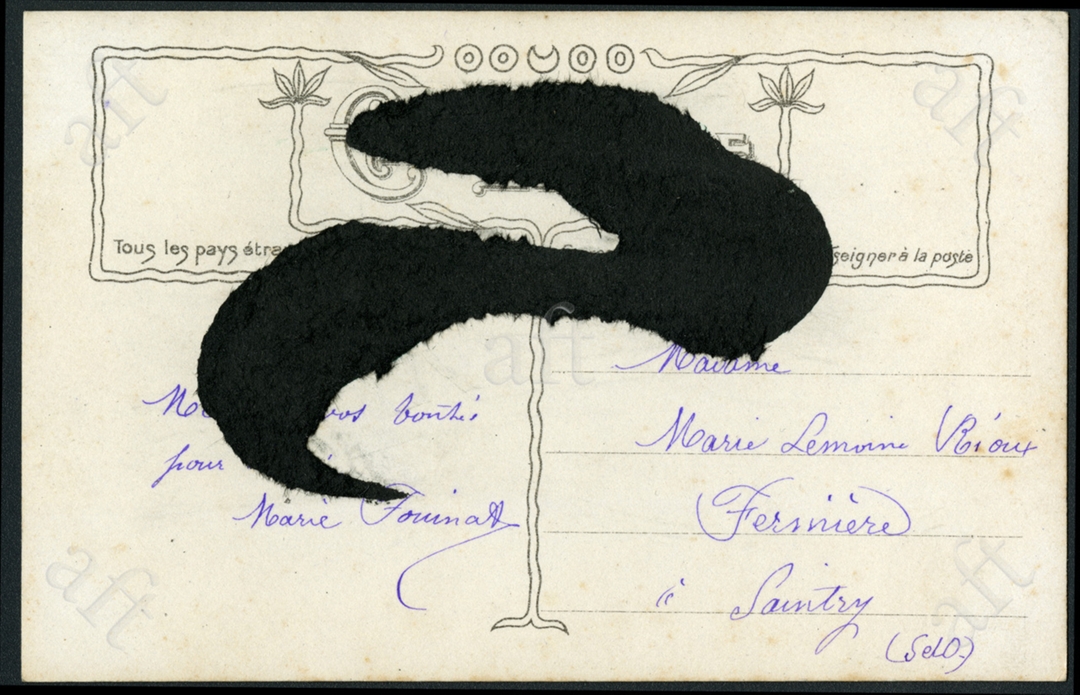 Tous les pays étra
seigner à la poste
vos bontés
pour
Marie Fouinat
Madame
Marie Lemoine Rioux
Fermière
à Saintry
(S et O)
aft
aft
aft
aft
aft